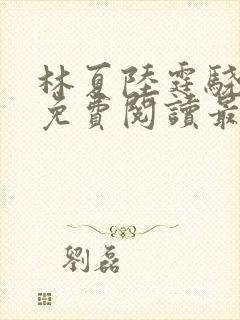 林夏陸霆驍
免費閱讀最
劉磊